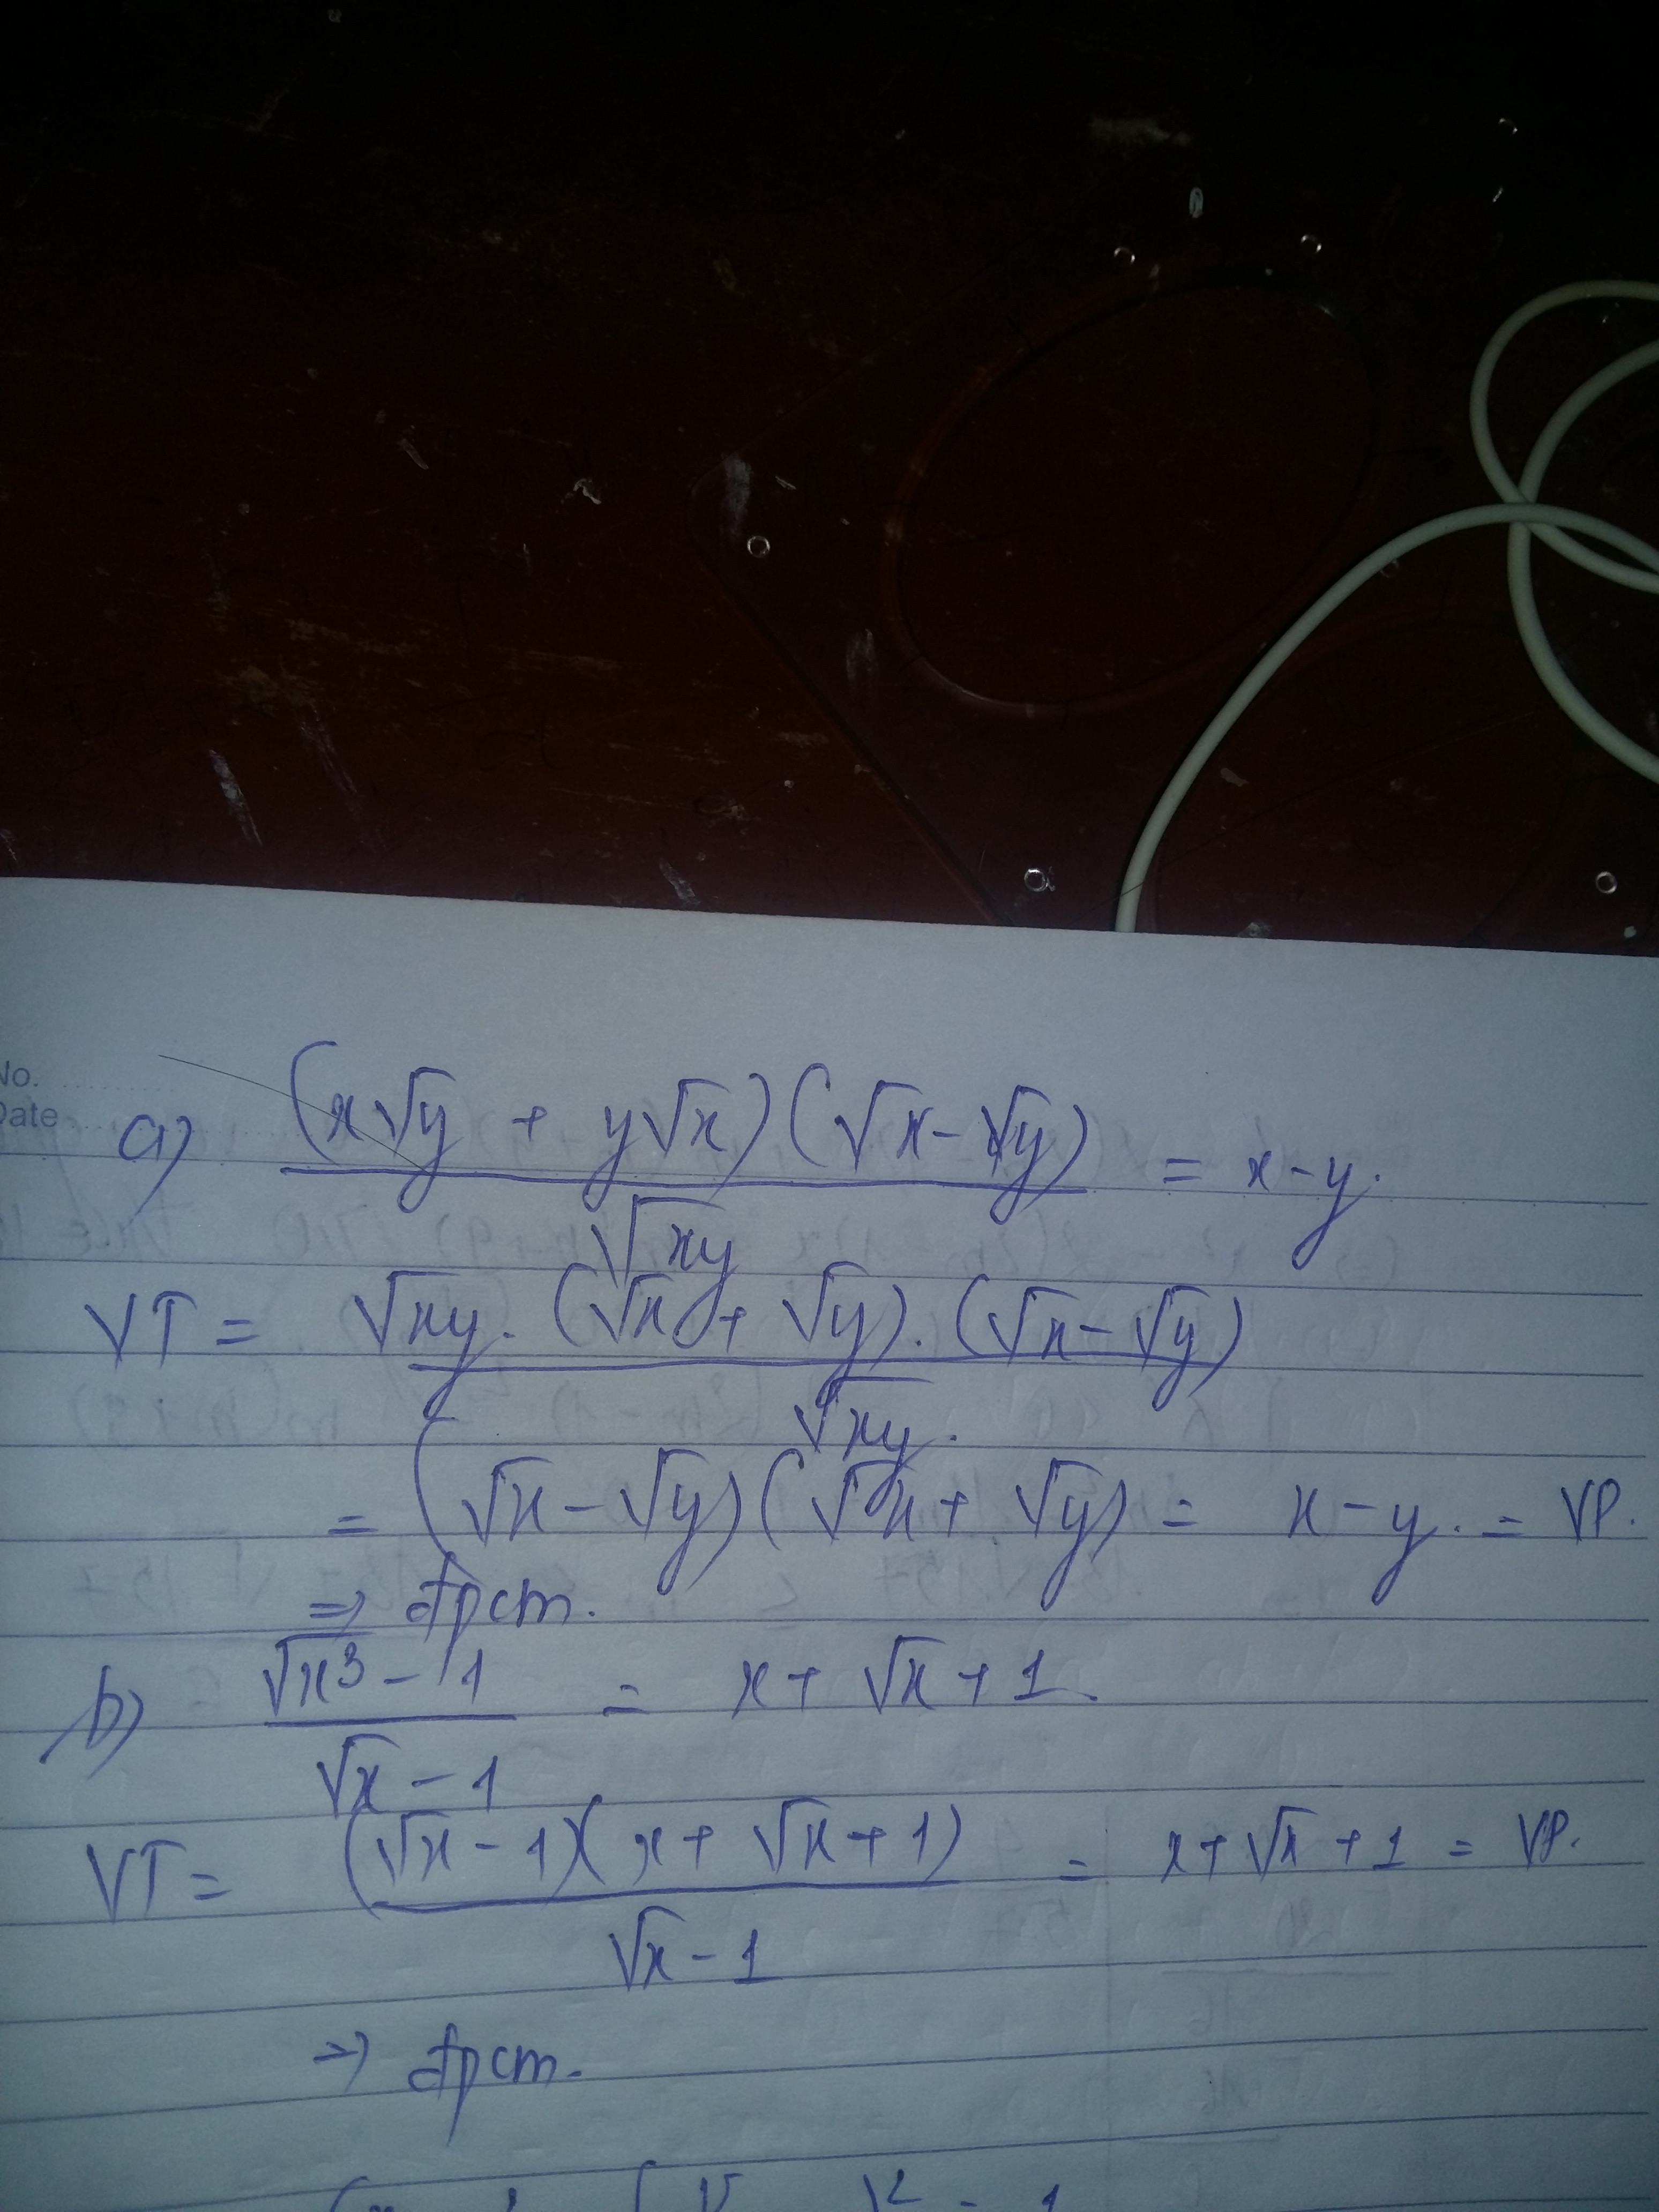 No.
Date
a) (x√y + y√x)(√x - √y) / √xy = x - y.
VT = √xy . (√x + √y) . (√x - √y) / √xy .
= (√x - √y)(√x + √y) = x - y . = VP.
=> đpcm.
b) √x³ - 1 / √x - 1 = x + √x + 1.
VT = (√x - 1)(x + √x + 1) / √x - 1 = x + √x + 1 = VP.
=> đpcm.